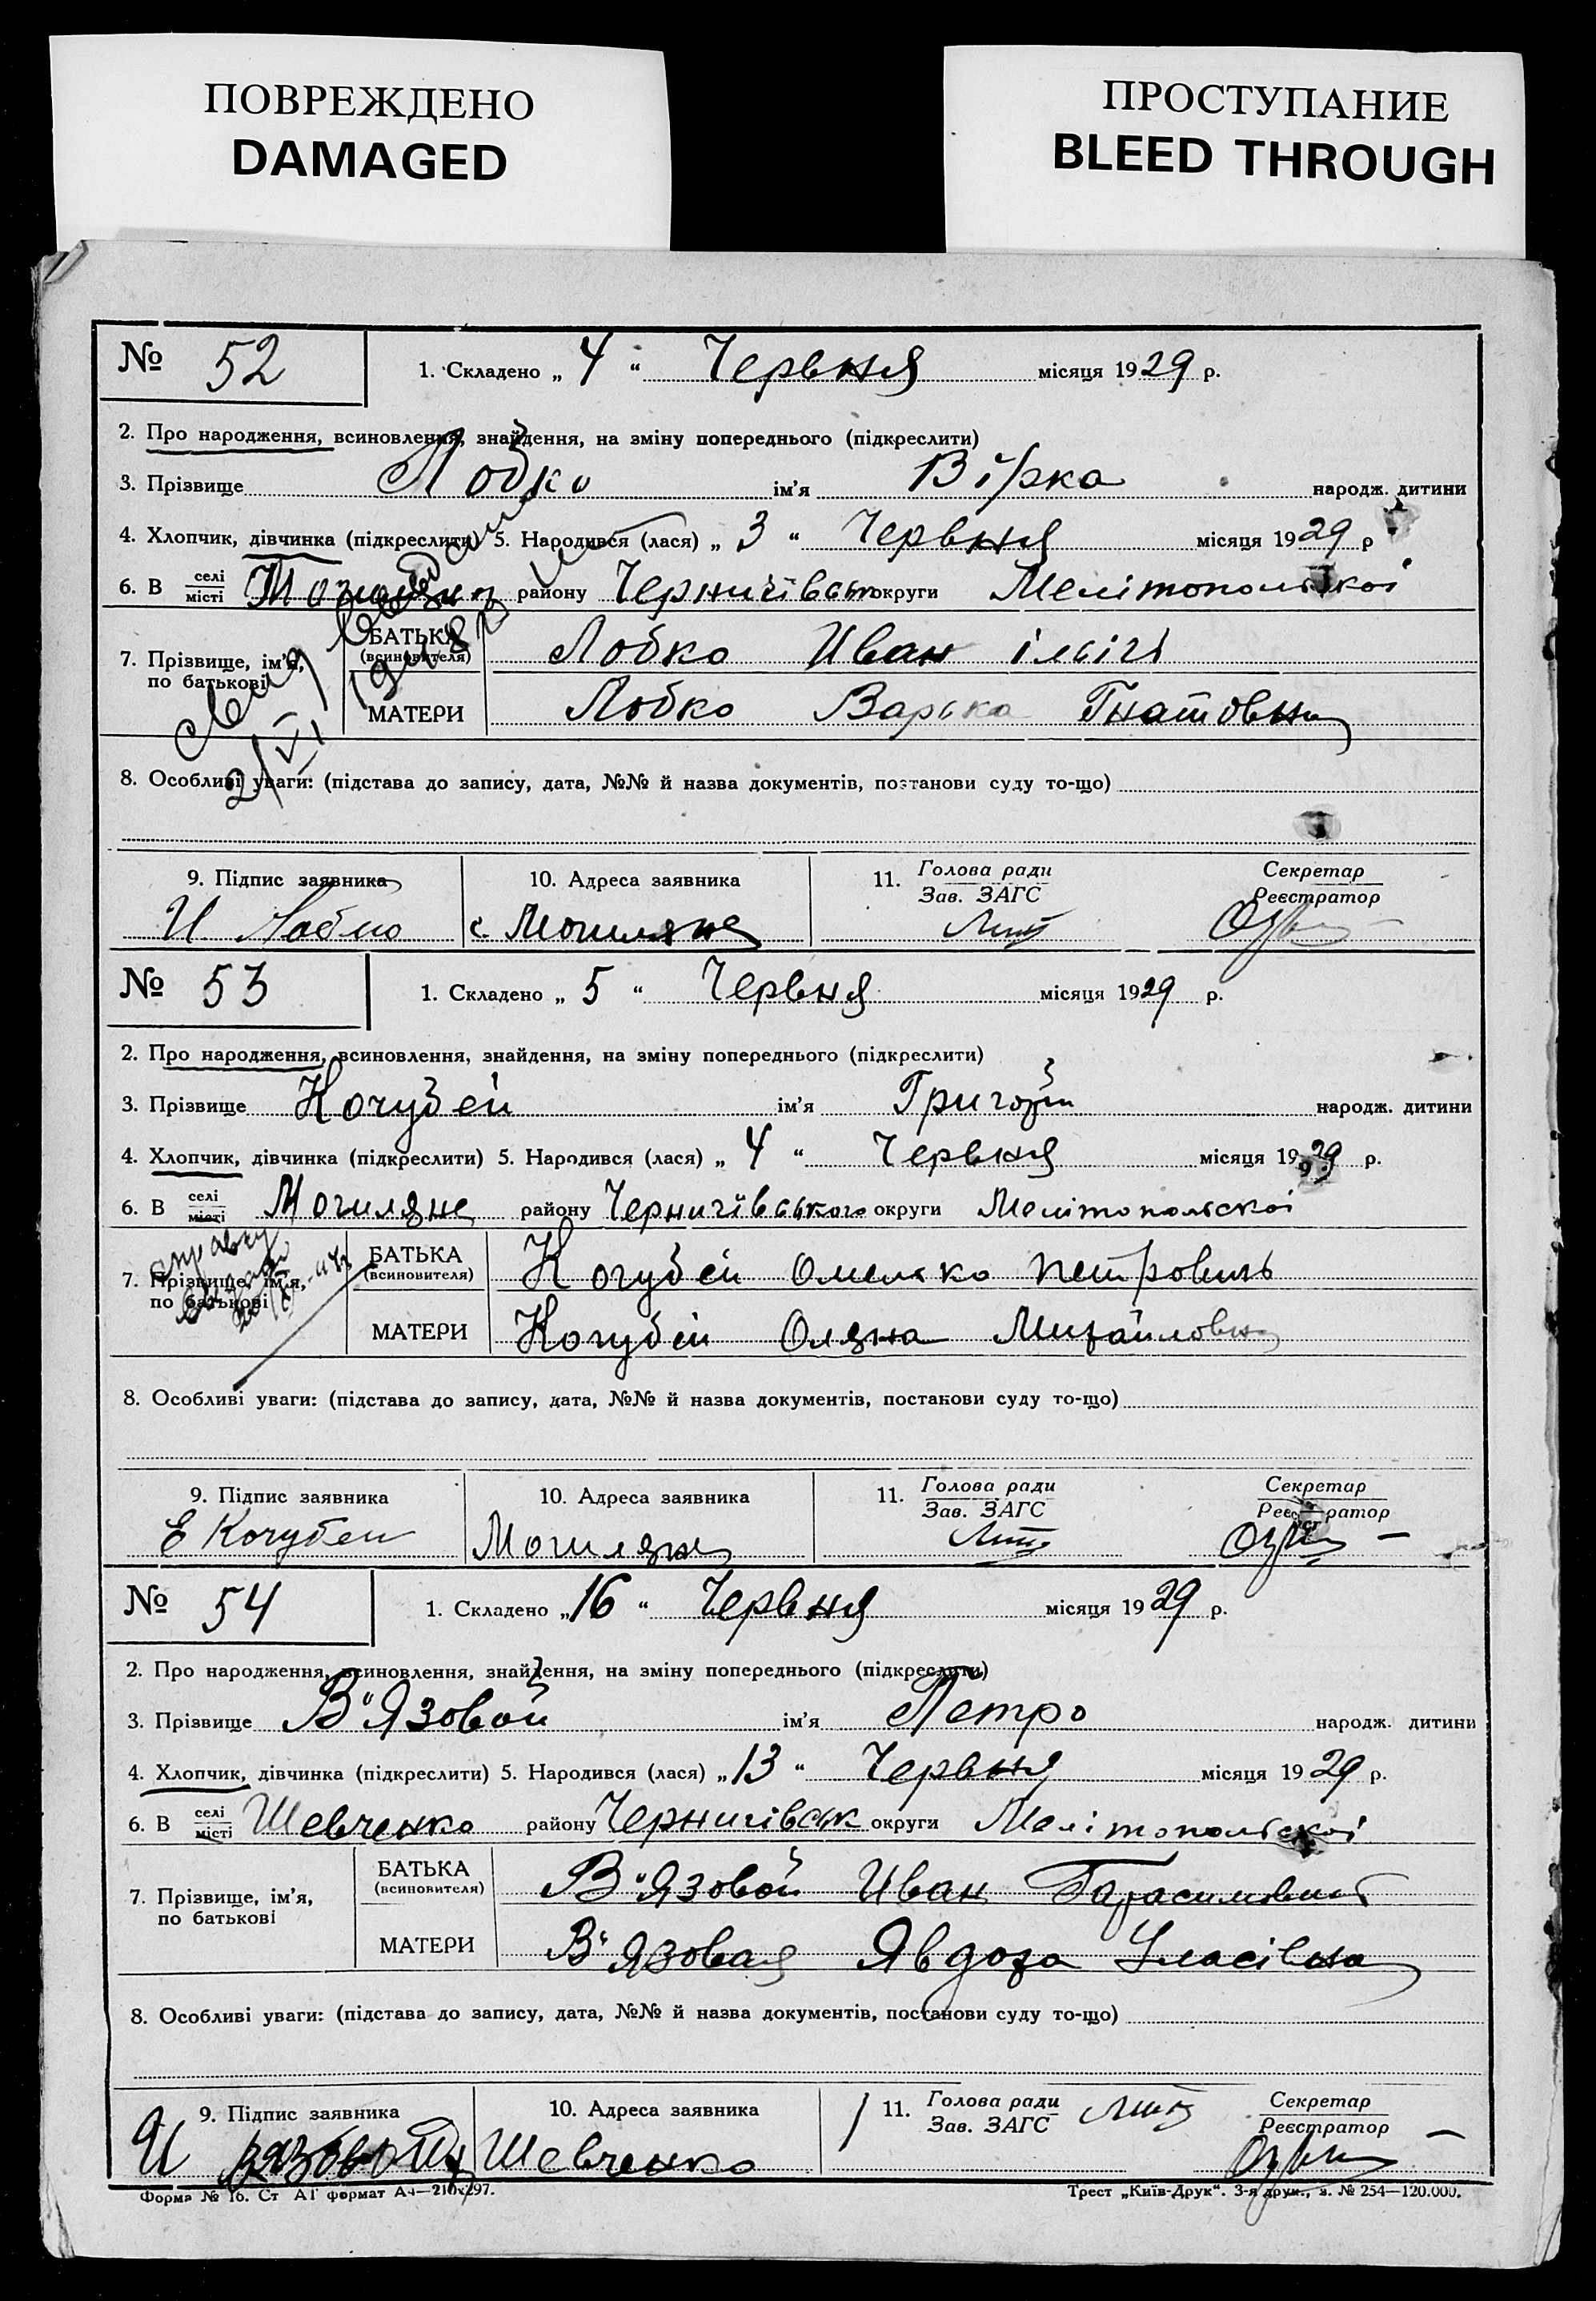 ПОВРЕЖДЕНО
DAMAGED
ПРОСТУПАНИЕ
BLEED THROUGH
№ 52
1. Складено „ 4 “ Червня місяця 1929 р.
2. Про народження, всиновлення, знайдення, на зміну попереднього (підкреслити)
3. Прізвище Лобко ім'я Вірка народж. дитини
4. Хлопчик, дівчинка (підкреслити) 5. Народився (лася) „ 3 “ Червня місяця 1929 р
6. В селі місті району Чернигівськ округи Мелітопольскоі
7. Прізвище, ім'я, по батькові
БАТЬКА (всиновителя) Лобко Иван ілліч
МАТЕРИ Лобко Варька Гнатовна
8. Особливі уваги: (підстава до запису, дата, №№ й назва документів, постанови суду то-що)
9. Підпис заявника
10. Адреса заявника
11. Голова ради Зав. ЗАГС
Секретар Реєстратор
И Лобко с. Могиляне
№ 53
1. Складено „ 5 “ Червня місяця 1929 р.
2. Про народження, всиновлення, знайдення, на зміну попереднього (підкреслити)
3. Прізвище Кочубей ім'я Григорій народж. дитини
4. Хлопчик, дівчинка (підкреслити) 5. Народився (лася) „ 4 “ Червня місяця 1929 р.
6. В селі місті Могиляне району Чернигівського округи Мелітопольскоі
справку
7. Прізвище, ім'я, по батькові
БАТЬКА (всиновителя) Кочубей Омелько Петрович
МАТЕРИ Кочубей Оляна Михайловна
8. Особливі уваги: (підстава до запису, дата, №№ й назва документів, постанови суду то-що)
9. Підпис заявника
10. Адреса заявника
11. Голова ради Зав. ЗАГС
Секретар Реєстратор
Е Кочубей Могиляне
№ 54
1. Складено „ 16 “ Червня місяця 1929 р.
2. Про народження, всиновлення, знайдення, на зміну попереднього (підкреслити)
3. Прізвище В"Язовой ім'я Петро народж. дитини
4. Хлопчик, дівчинка (підкреслити) 5. Народився (лася) „ 13 “ Червня місяця 1929 р.
6. В селі місті Шевченко району Чернигівськ округи Мелітопольскоі
7. Прізвище, ім'я, по батькові
БАТЬКА (всиновителя) В"Язовой Иван Гарасимович
МАТЕРИ В"Язовая Явдоха Уласівна
8. Особливі уваги: (підстава до запису, дата, №№ й назва документів, постанови суду то-що)
9. Підпис заявника
10. Адреса заявника
11. Голова ради Зав. ЗАГС
Секретар Реєстратор
И Вязовой Шевченко
Форма № 16. Ст А1 формат А4—210х297.
Трест „Київ-Друк“. 3-я друк., з. № 254—120.000.